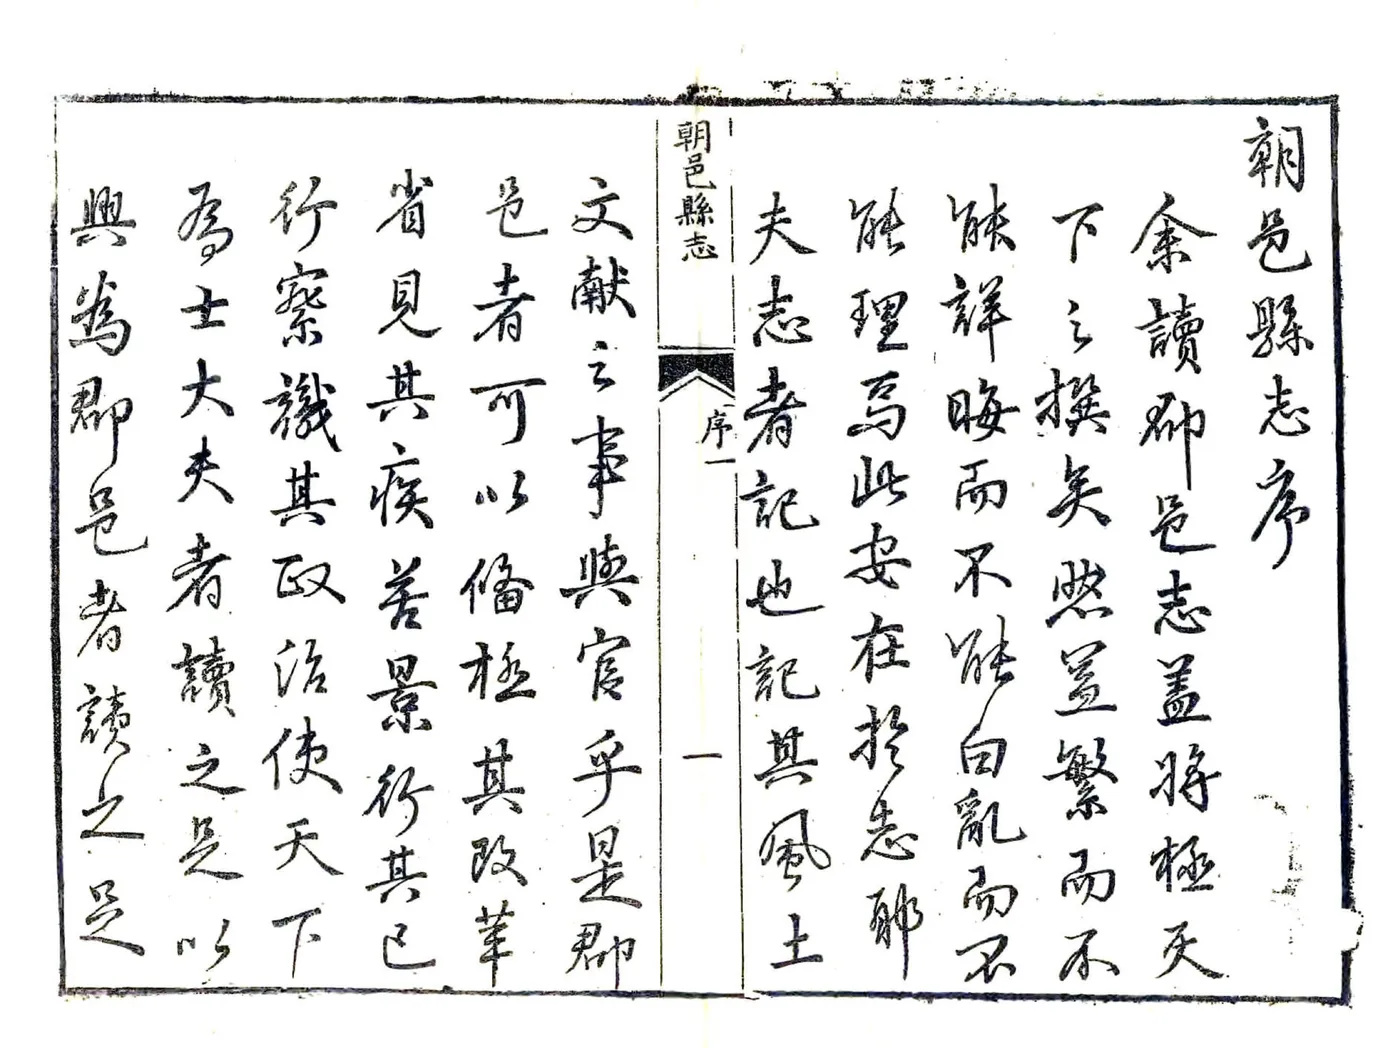 朝邑縣志序
余讀郡邑志蓋將極天
下之撰矣然益繁而不
能詳晦而不能白亂而不
能理焉此安在於志耶
夫志者記也記其風土
朝邑縣志
序一
一
文献之事與官乎是郡
邑者可以俻極其改革
省見其疾苦景行其已
行察識其政治使天下
為士大夫者讀之足以
興為郡邑者讀之足